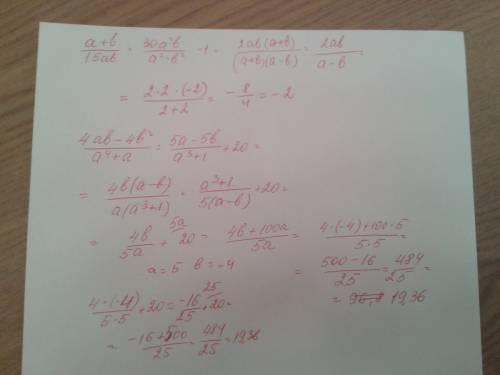 (a+b)/(15ab) · (30a²b²)/(a²-b²) = (2ab(a+b))/((a+b)(a-b)) = (2ab)/(a-b) =
= (2·2·(-2))/(2+2) = -8/4 = -2
(4ab-4b²)/(a⁴+a) : (5a-5b)/(a³+1) +20=
= (4b(a-b))/(a(a³+1)) · (a³+1)/(5(a-b)) +20=
= 4b/5a + 20 ^5a = (4b+100a)/5a = (4·(-4)+100·5)/(5·5) =
a=5 b=-4
= (500-16)/25 = 484/25 =
= 19,36
(4·(-4))/(5·5) +20= -16/25 + 20 ^25 =
= (-16+500)/25 = 484/25 = 19,36